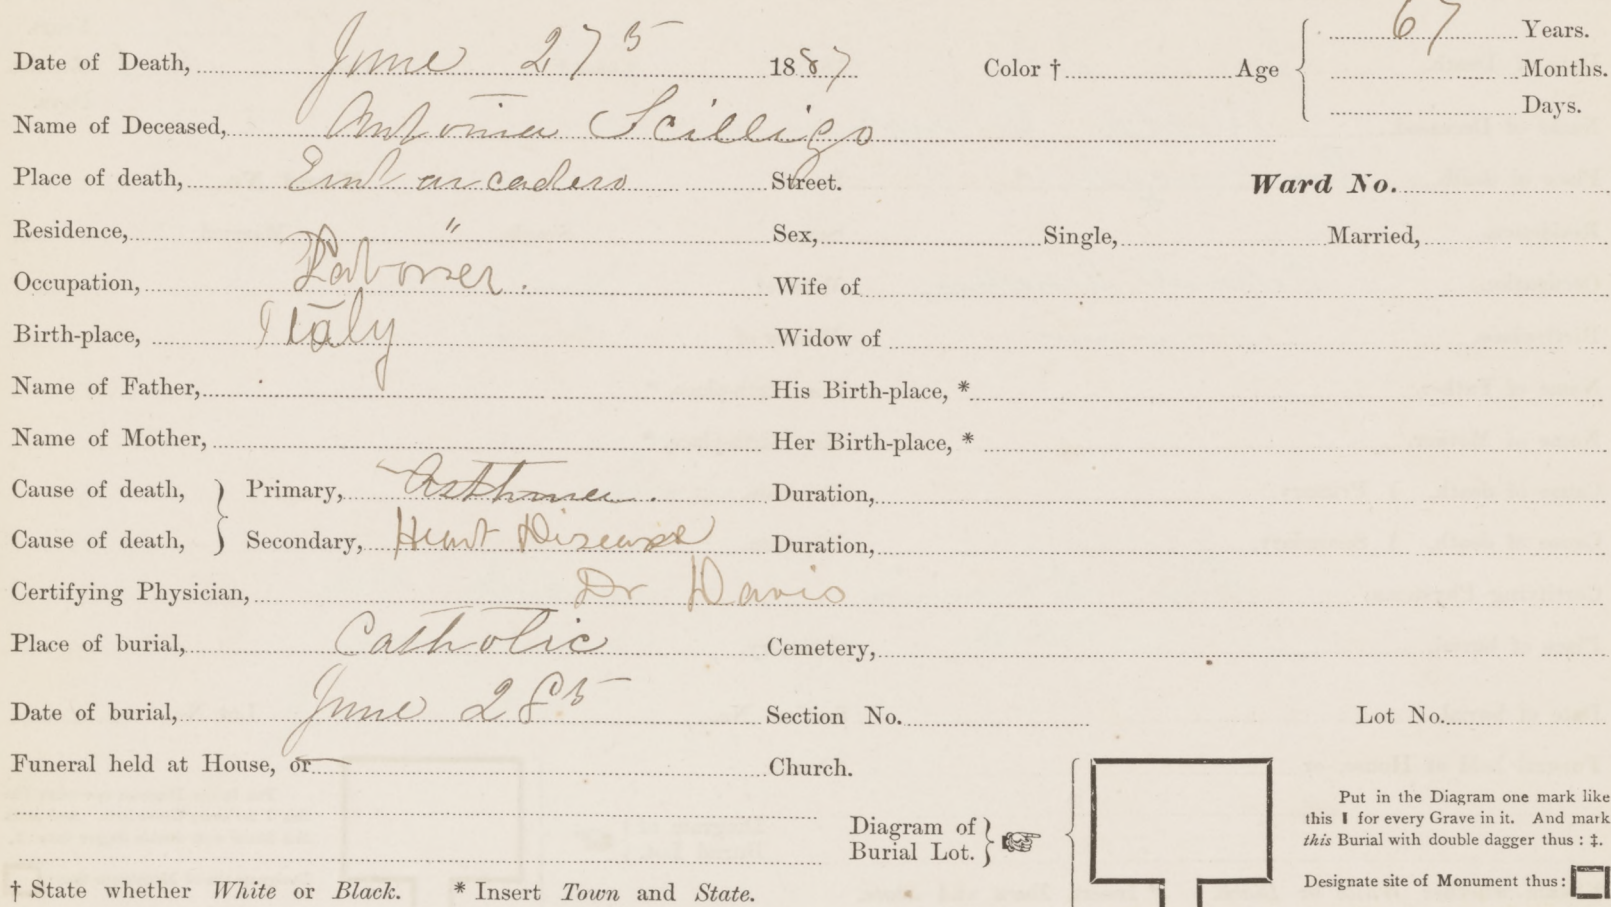 Date of Death, June 27th 1887 Color † Age 67 Years.
Months.
Days.
Name of Deceased, Antonia Scilligo
Place of death, Embarcadero Street. Ward No.
Residence, " Sex, Single, Married,
Occupation, Laborer. Wife of
Birth-place, Italy Widow of
Name of Father, His Birth-place, *
Name of Mother, Her Birth-place, *
Cause of death, } Primary, Asthma. Duration,
Cause of death, } Secondary, Heart Disease Duration,
Certifying Physician, Dr Davis
Place of burial, Catholic Cemetery,
Date of burial, June 28th Section No. Lot No.
Funeral held at House, or Church.
Diagram of
Burial Lot. }
Put in the Diagram one mark like
this I for every Grave in it. And mark
this Burial with double dagger thus : ‡.
Designate site of Monument thus :
† State whether White or Black. * Insert Town and State.